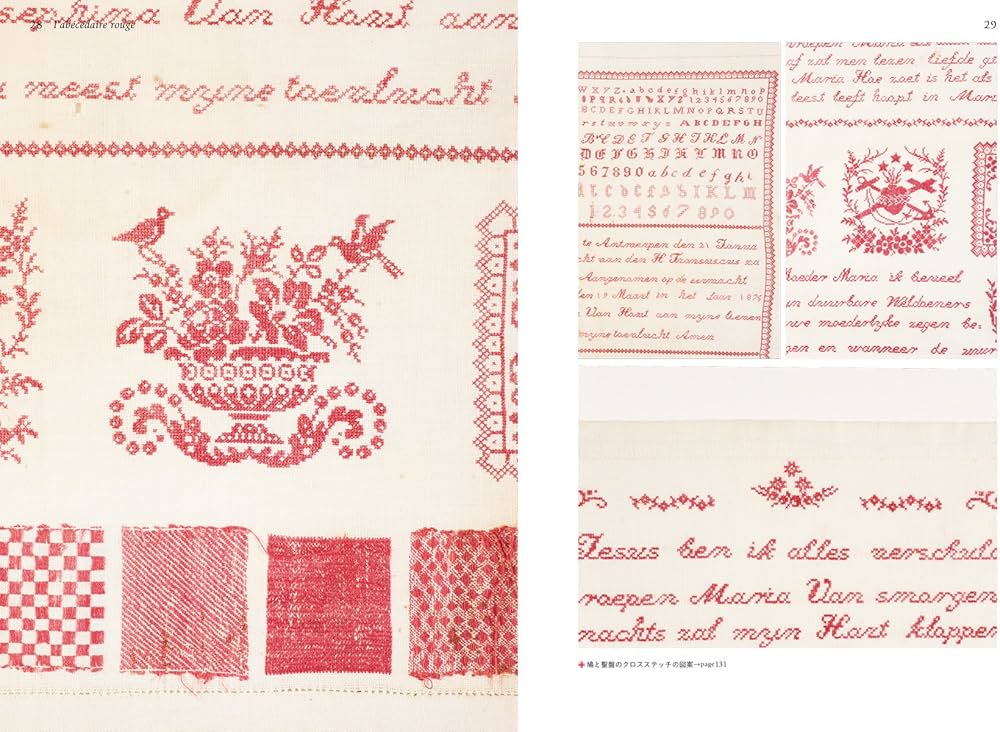 28 l'abécédaire rouge
Van Hart aan
meest myne toevlucht
29
W X Y Z • a b c d e f g h i j k l m n o P
1 2 3 4 5 6 7 8 9 0
B C D E F G H I J K L M N O P Q R S T U
A B C D E F G H
5 6 7 8 9 0 a b c d e f g h i
1 2 3 4 5 6 7 8 9 0
te Antwerpen den 21 Janua
cht van den H Franciscus xa
Aangenamen op de eermacht
den 19 Maart in het Jaar 187
Van Hart aan myne lieven
myne toevlucht Amen
roepen Maria
af zal men lezen liefde g
Maria Hoe zoet is het als
leeft hoopt in Mari
Moeder Maria ik beveel
un duurbare Weldoeners
uwe moederlyke zegen be:
gen en wanneer de uur
Jesus ben ik alles verschuld
roepen Maria Van smorgen
nachts zal myn Hart kloppen
鳩と聖盤のクロスステッチの図案→page131